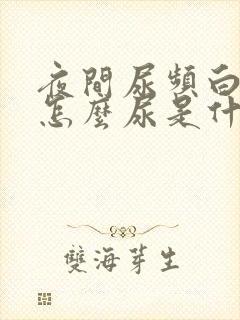 夜間尿頻白
怎麼尿是什
雙海芽生